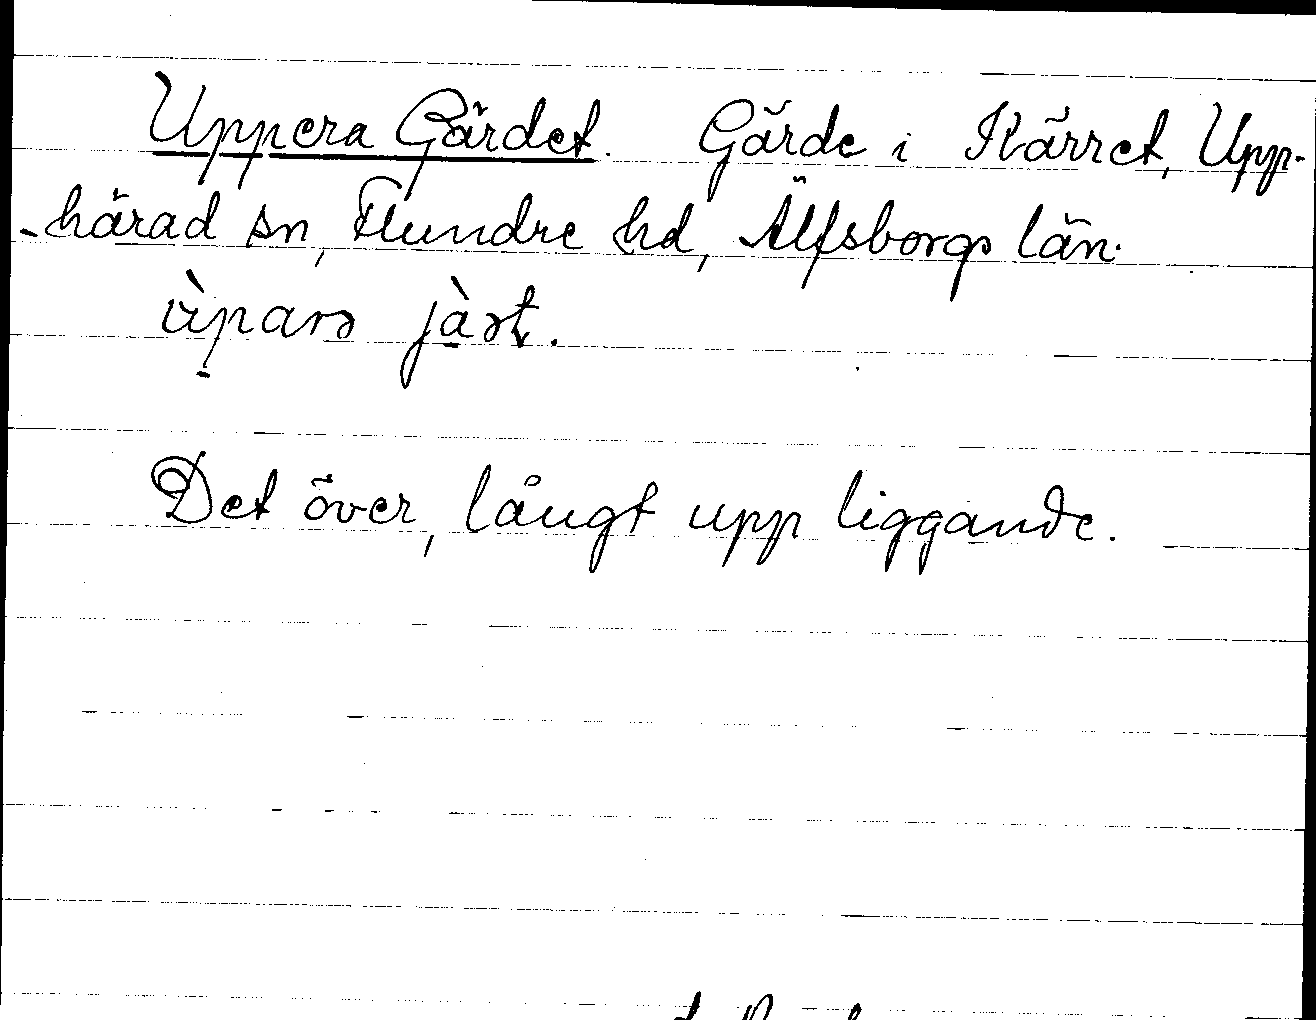 Uppera Gärdet. Gärde i Kärret, Upp-
-härad sn, Flundre hd, Älfsborgs län.
ùpara jàrt.
Det över, långt upp liggande.